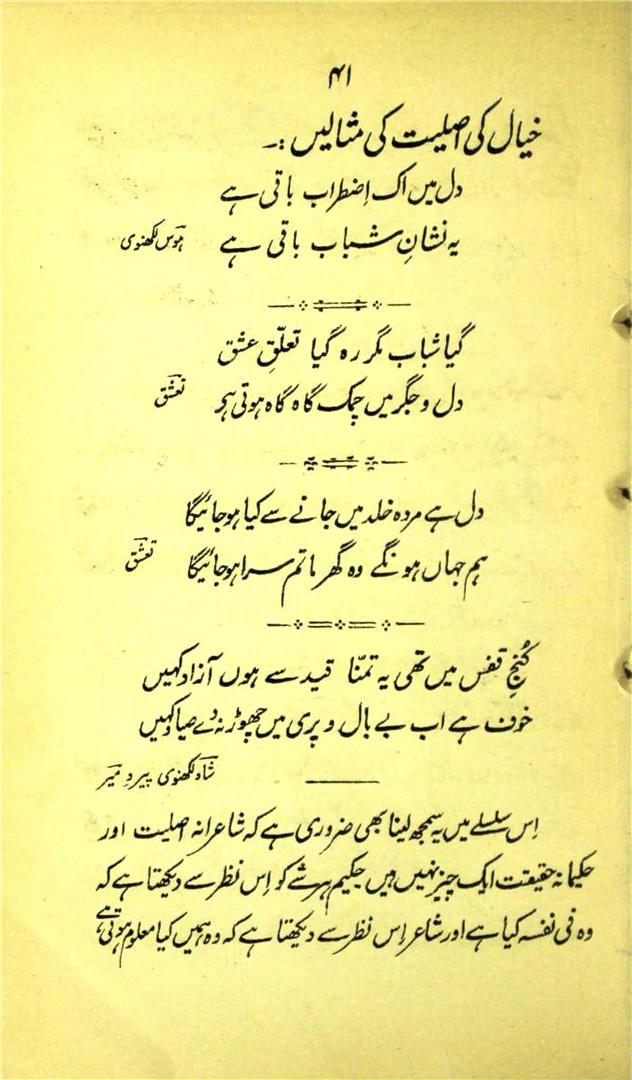 ۴۱
خیال کی اصلیت کی مثالیں :۔
دل میں اک اِضطراب باقی ہے
یہ نشانِ شباب باقی ہے ہوسؔ لکھنوی
گیا شباب مگر رہ گیا تعلّقِ عشق
دل و جگر میں چمک گاہ گاہ ہوتی ہے تعشّقؔ
دل ہے مردہ خلد میں جانے سے کیا ہو جائیگا
ہم جہاں ہونگے وہ گھر ماتم سرا ہو جائیگا تعشّقؔ
کُنجِ قفس میں تھی یہ تمنّا قید سے ہوں آزاد کہیں
خوف ہے اب بے بال و پری میں چھوڑ نہ دے صیاد کہیں
شادؔ لکھنوی پیروِ میرؔ
اِس سلسلے میں یہ سمجھ لینا بھی ضروری ہے کہ شاعرانہ اصلیت اور
حکیمانہ حقیقت ایک چیز نہیں ہیں حکیم ہر شے کو اِس نظر سے دیکھتا ہے کہ
وہ فی نفسہ کیا ہے اور شاعر اِس نظر سے دیکھتا ہے کہ وہ ہمیں کیا معلوم ہوتی ہے،